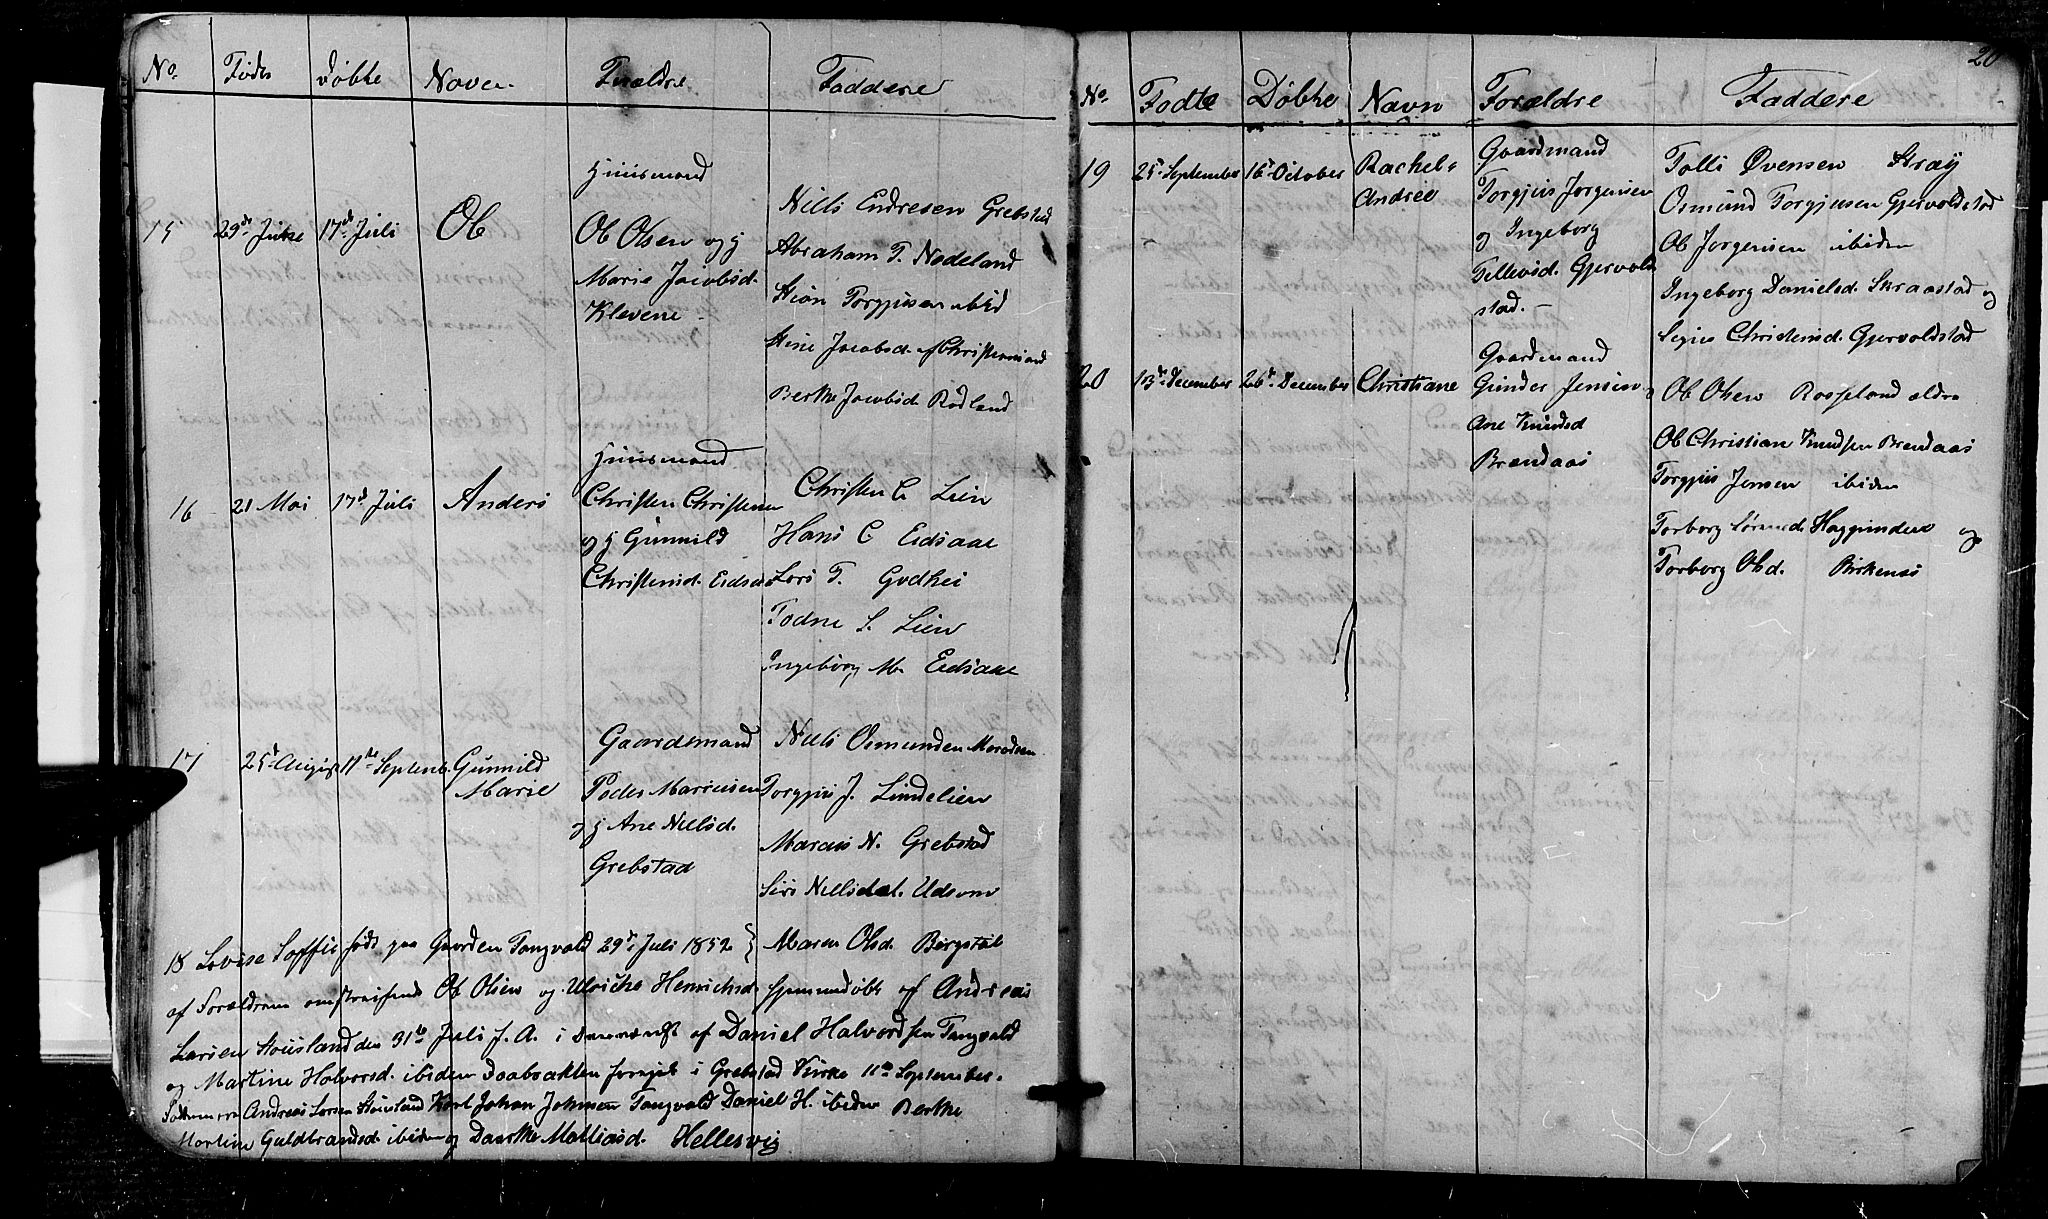 No. Føds Døbte Naven Forældre Faddere
15 29de June 17de Juli Ole
Huusmand
Ole Olsen og H
Marie Jacobsd.
Klevene
Niels Endresen Grebstad
Abraham T. Nodeland
Torgjusen ibid
Stine Jacobsd. af Christiansand
Berthe Jacobsd. Rodland
16 21 Mai 17d Juli Anders
Huusmand
Christen Christensen
og H Gunnild
Christensd. Eidsaae
Christen C. Lien
Hans C Eidsaae
Lars T. Godhei
Todne S. Lien
Ingeborg M. Eidsaae
17 25d August 11te Septemb. Gunnild
Marie
Gaardsmand
Peder Marcusen
og H Ane Nielsd.
Grebstad
Niels Osmunden
Torgjus J. Lindelien
Marcus N. Grebstad
Siri Nielsdat. Udsom
18 Lovise Soffie føds paa Gaarden Tangvald 29de Juli 1852 } Maren Olsd. Birgstøl
af Forældrene omstreifende Ole Olsen og Ulricke Henrichsd. hjemmedøbt af Andreas
Larsen Stousland den 31te Juli J. A. i af Daniel Halvordsen Tangvald
og Martine Halvorsd. ibiden Daabsakten fornyet i Grebstad Kirke 11te September.
Andreas Larsen Stousland Karl Johan Johnsen Tangvald Daniel H. ibiden Berthe
Martine Guldbrandsd. ibiden og Dorthe Mattiasd. Hellesvig
20
No. Fødte Døbte Navn Forældre Faddere
19 25de September 16de October Rachel=
Andrea
Gaardmand
Torgjus Jorgensen
og Ingeborg
Tellevsd. Gjervold
stad.
Tolli Øvensen Stray
Osmund Torgjusen Gjervoldstad
Ole Jorgensen ibiden
Ingeborg Danielsd. Skraastad og
Christensd. Gjervoldstad
20 13de December 26de December Christiane
Gaardmand
Gunder Jensen og
Ane Knudsd
Brendaas
Ole Olsen Rosseland ældre
Ole Christian Knudsen Brendaas
Torgjus Jensen ibiden
Torborg og
Torborg Olsd. Birkenes